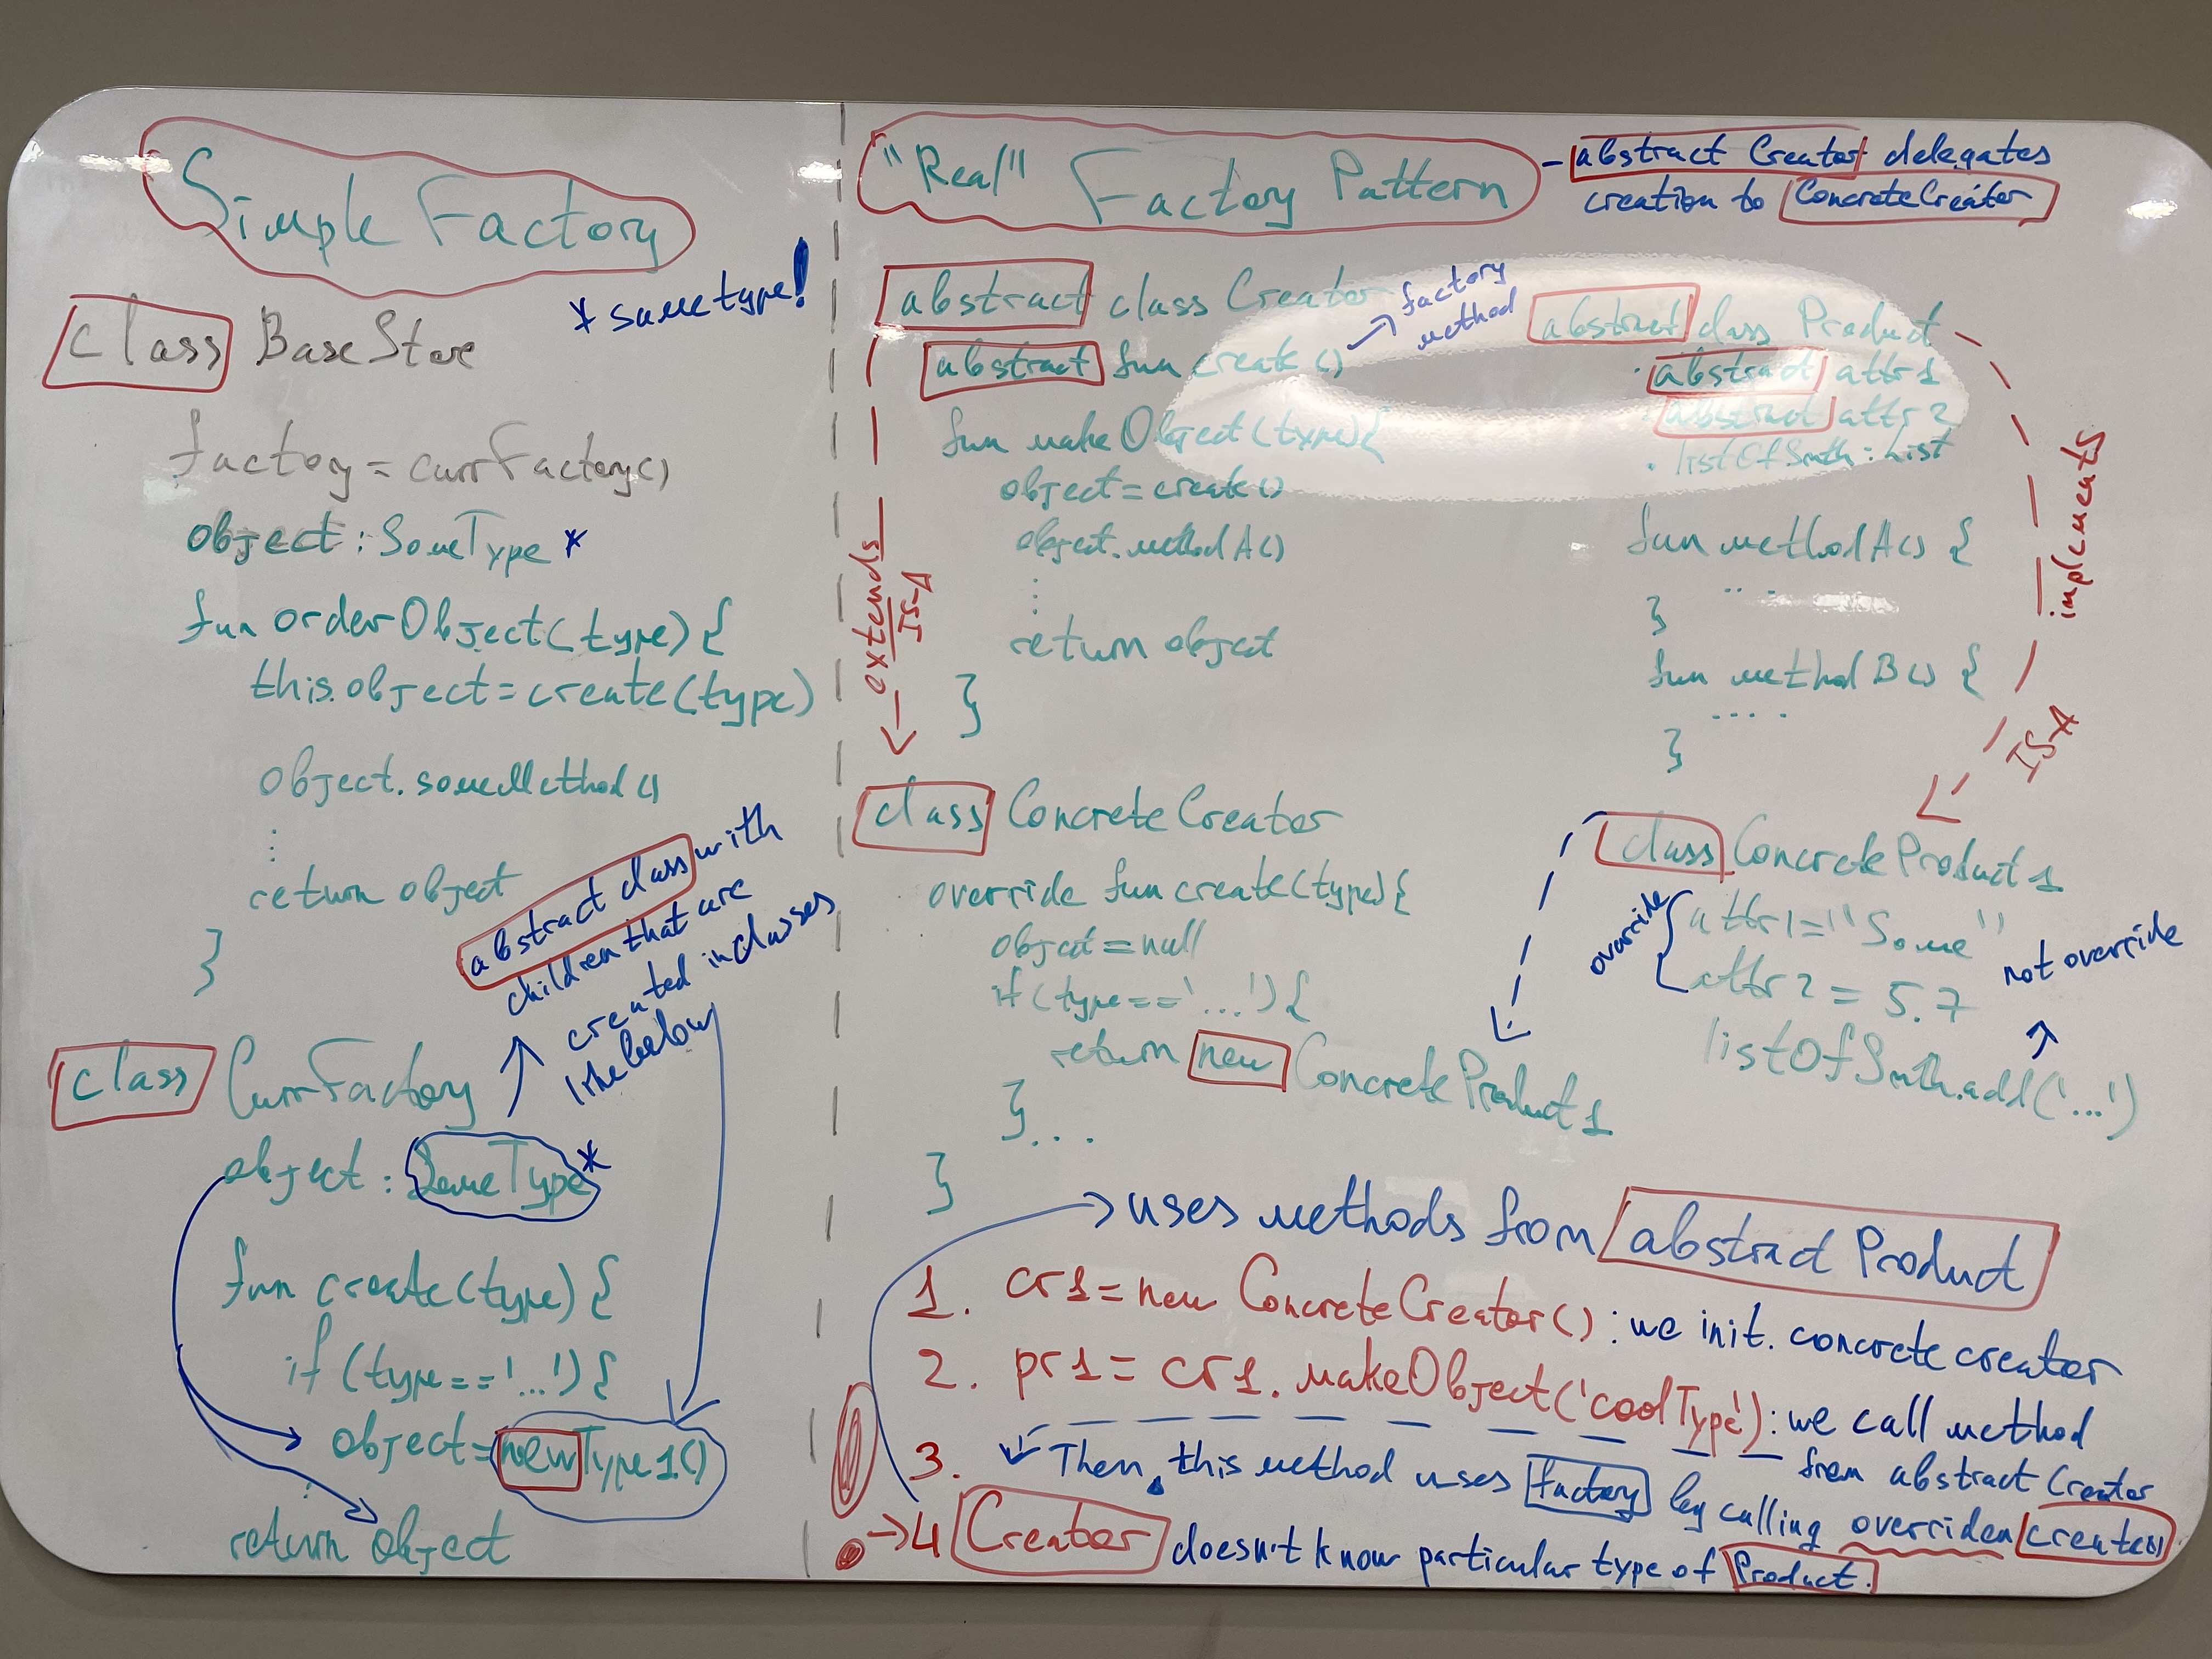 Simple Factory
* same type!
class BaseStore
factory = currFactory()
object : SomeType *
fun orderObject(type) {
this.object = create(type)
object.someMethod()
⋮
return object
}
abstract class with
children that are
created in classes
like below
class CurrFactory
object : SomeType *
fun create(type) {
if (type == '...') {
object = new Type1()
⋮
return object
"Real" Factory Pattern
- abstract Creator delegates
creation to ConcreteCreator
abstract class Creator
abstract fun create()
factory
method
fun makeObject(type) {
object = create()
object.methodA()
⋮
return object
}
extends
IS-A
abstract class Product
· abstract attr1
· abstract attr2
· listOfSmth : List
fun methodA() {
....
}
fun methodB() {
....
}
implements
IS-A
class ConcreteCreator
override fun create(type) {
object = null
if (type == '...') {
return new ConcreteProduct1
} ...
}
class ConcreteProduct1
override
attr1 = "Some"
attr2 = 5.7
not override
listOfSmth.add('...')
uses methods from abstract Product
1. cr1 = new ConcreteCreator() : we init. concrete creator
2. pr1 = cr1.makeObject('coolType') : we call method
from abstract Creator
3. Then, this method uses factory by calling overriden create()
4 Creator doesn't know particular type of Product.